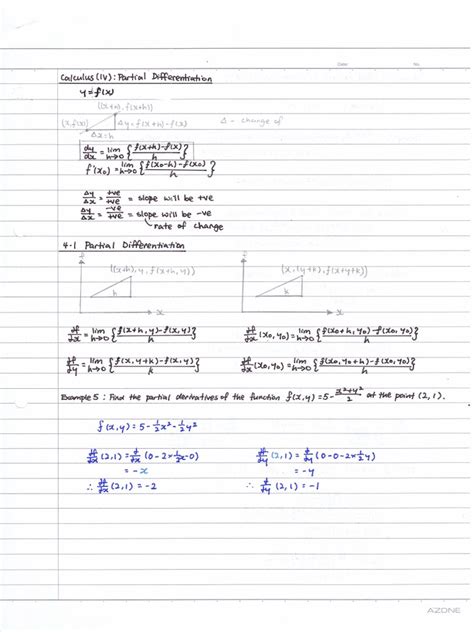 Date No.
Calculus (IV): Partial Differentiation
y = f(x)
((x+h), f(x+h))
(x, f(x)) Δy = f(x+h) - f(x) Δ - change of
Δx = h
dy/dx = lim h→0 {f(x+h) - f(x)/h}
f'(x₀) = lim h→0 {f(x₀-h) - f(x₀)/h}
Δy/Δx = +ve/+ve = slope will be +ve
Δy/Δx = -ve/+ve = slope will be -ve
rate of change
4.1 Partial Differentiation
z ((x+h), y, f(x+h, y)) z (x, (y+k), f(x+y+k))
h k
x x
∂f/∂x = lim h→0 {f(x+h, y) - f(x, y)/h} ∂f/∂x (x₀, y₀) = lim h→0 {f(x₀+h, y₀) - f(x₀, y₀)/h}
∂f/∂y = lim h→0 {f(x, y+k) - f(x, y)/k} ∂f/∂x (x₀, y₀) = lim h→0 {f(x₀, y₀+h) - f(x₀, y₀)/k}
Example 5: Find the partial derivatives of the function f(x,y) = 5 - x²+y²/2 at the point (2, 1).
f(x, y) = 5 - ½x² - ½y²
∂f/∂x (2, 1) = ∂/∂x (0 - 2×½x - 0) ∂f/∂y (2, 1) = ∂/∂y (0 - 0 - 2×½y)
= -x = -y
∴ ∂f/∂x (2, 1) = -2 ∴ ∂/∂y (2, 1) = -1
AZONE